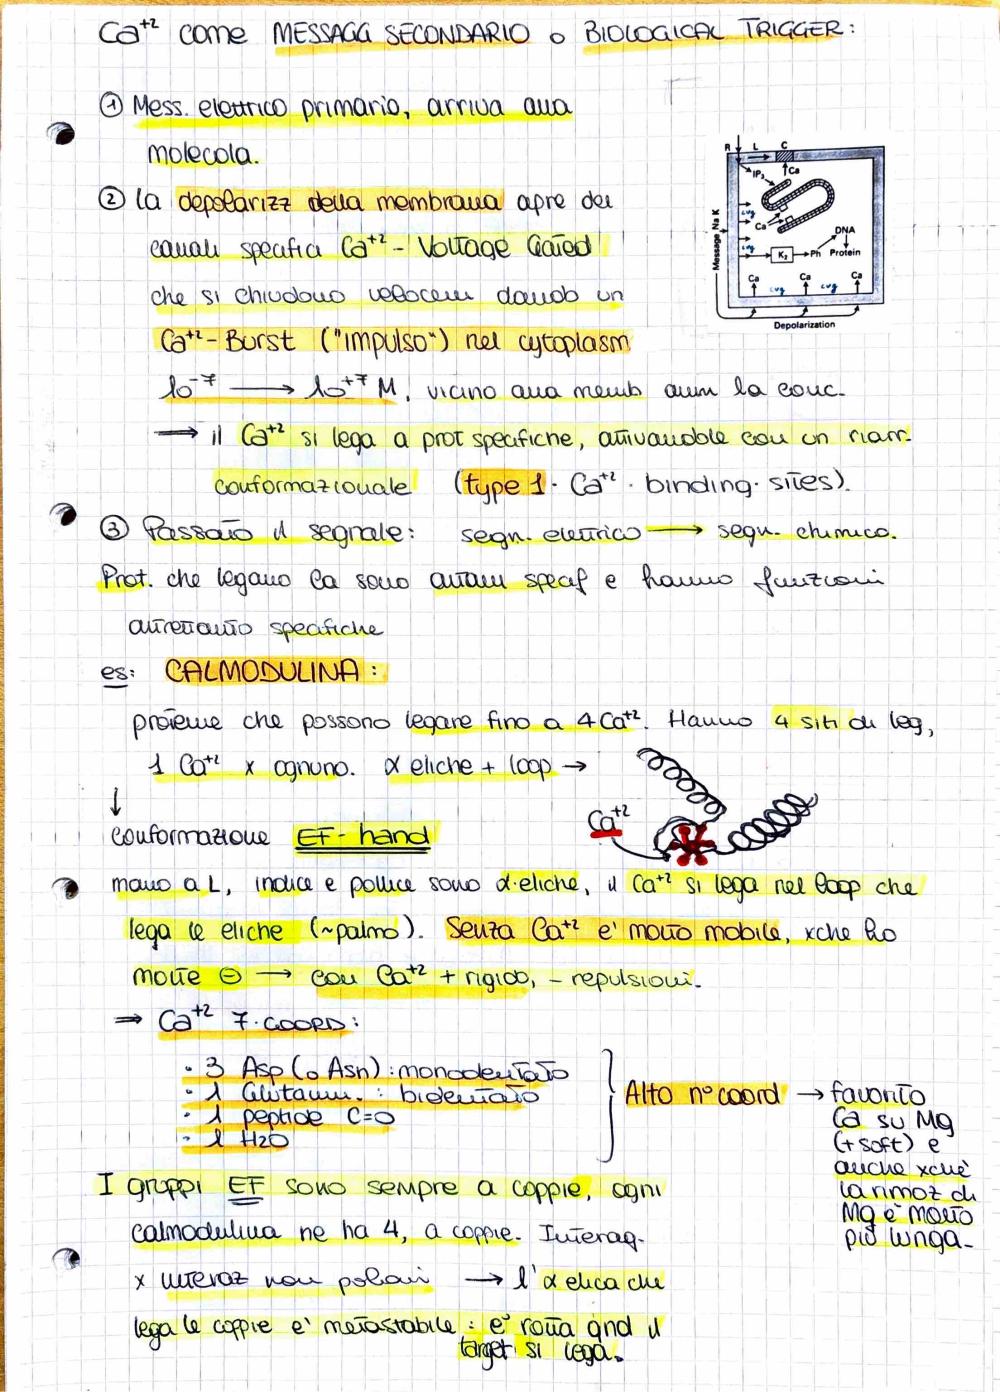 Ca+2 come MESSAGG SECONDARIO o BIOLOGICAL TRIGGER:
① Mess. elettrico primario, arriva alla
molecola.
② la depolarizz della membrana apre dei
canali specifici Ca+2 - Voltage Gated
che si chiudono velocem dando un
Ca+2 - Burst ("impulso") nel cytoplasm
10-7 → 10+7 M, vicino alla memb aum la conc.
→ il Ca+2 si lega a prot specifiche, attivandole con un riarr.
conformazionale (type 1 · Ca+2 · binding · sites).
③ Passato il segnale: segn. elettrico → segn. chimico.
Prot. che legano Ca sono altam specif e hanno funzioni
altrettanto specifiche
es: CALMODULINA:
proteine che possono legare fino a 4 Ca+2. Hanno 4 siti di leg,
1 Ca+2 x ognuno. α eliche + loop →
↓
conformazione EF-hand
Ca+2
mano a L, indice e pollice sono α·eliche, il Ca+2 si lega nel loop che
lega le eliche (~palmo). Senza Ca+2 e' molto mobile, xche ho
molte ⊖ → con Ca+2 + rigido, - repulsioni.
⇒ Ca+2 7·COORD:
· 3 Asp (o Asn) : monodentato
· 1 Glutamm. : bidentato
· 1 peptide C=O
· 1 H2O
Alto n° coord → favorito
Ca su Mg
(+ soft) e
anche xchè
la rimoz di
Mg è molto
più lunga.
I gruppi EF sono sempre a coppie, ogni
calmodulina ne ha 4, a coppie. Interag.
x interaz non polari → l'α elica che
lega le coppie e' metastabile: e' rotta qnd il
target si lega.
R L C
IP3 Ca
Message Na K
cvg
Ca
cvg
DNA
K2 → Ph Protein
Ca Ca Ca
cvg cvg
Depolarization